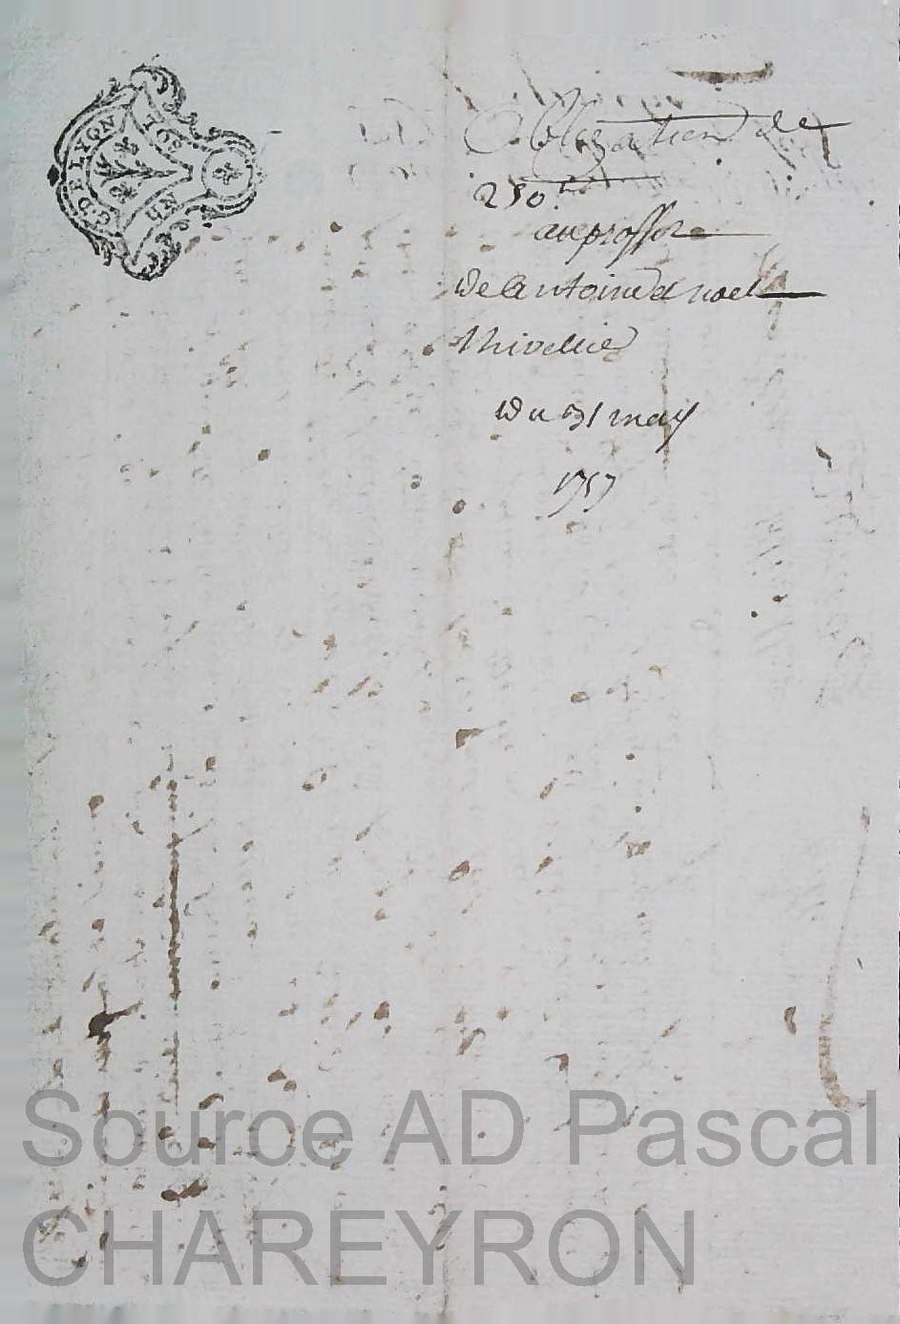 G. DE LYON
Obligation de
250ᵗᵗ
au proffit
de Antoine noel
Thivellier
Du 31 may
1757
Source AD Pascal
CHAREYRON